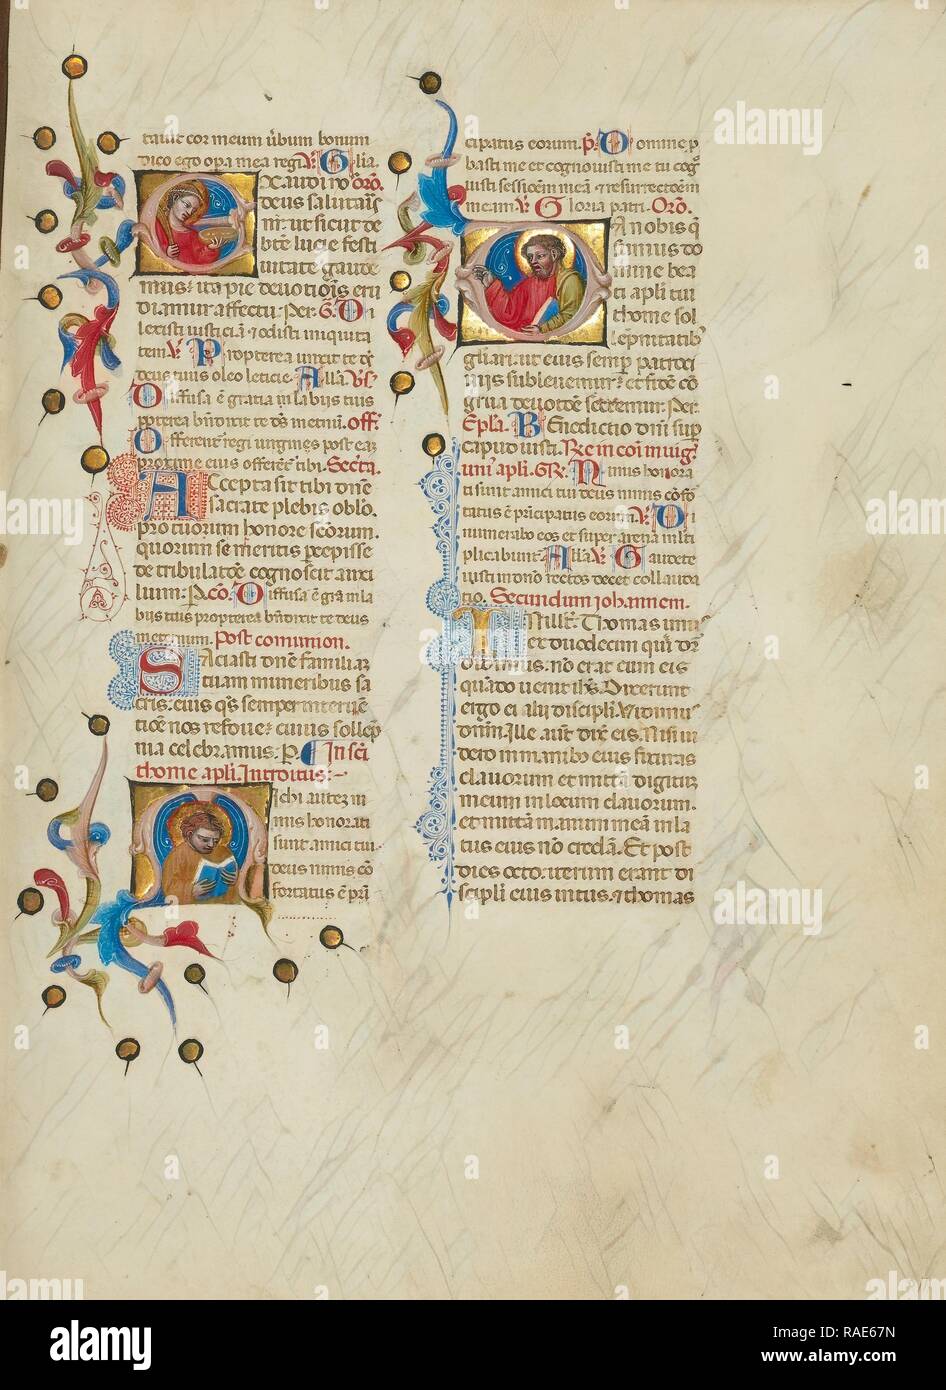 tauit cor meum ūbum bonum
dico ego opa mea regi. V. Glia.
Exaudi nos orō.
deus salutaris
nr. ut sicut de
btē lucie festi
uitate gaude
mus: ita pie deuotiois eru
diamur affectu. Per. G. Di
lexisti iusticiā et odisti iniquita
tem. V. Propterea unxit te ds
deus tuus oleo leticie. Alla. Vs.
Diffusa ē gratia in labiis tuis
propterea bndixit te ds
Offerent regi uirgines post eaz
proxime eius offerēt tibi. Secta.
Accepta sit tibi dne
sacrate plebis oblo.
pro tuorum honore scorum.
quorum se meritis pcepisse
de tribulatoe cognoscit auxi
lium. P. co. Diffusa ē gra in la
biis tuis propterea bndixit te deus
Post comunion.
Saciasti dne familiaz
tuam muneribus sa
cris. eius qs semper interuē
tioē nos refoue. cuius sollep
nia celebramus. P. In sci
thome apli. Introitus.
Michi autez ni
mis honorati
sunt amici tui.
deus nimis cō
fortatus ē pri
cipatus eorum. ps. Domine p
basti me et cognouisti me tu cog
uisti sessioem meā et resurrectoem
meam. V. Gloria patri. Orō.
Da nobis q
sumus do
mine bea
ti apli tui
thome sol
lepnitatib
gliari. ut eius semp patroci
niis subleuemur. et fidē cō
grua deuotoe sectemur. Per.
Epla. Benedictio dni sup
caput iusti. Re in coi in uig.
uni apli. GR. Nimis honora
ti sunt amici tui deus nimis cofo
tatus ē principatus eorum. V. Di
numerabo eos et super arena mlti
plicabunt. Alla. V. Gaudete
iusti in dno rectos decet collauda
tio. Secundum iohannem.
In illo t. Thomas unu
et duodecim qui dr
didimus. nō erat cum eis
quādo uenit ihs. Dixerunt
ergo ei alii discipli. Vidimus
dnm. Ille aut dix eis. Nisi ui
dero in manibo eius fixuras
clauorum et mittā digituz
meum in locum clauorum.
et mittā manum meā in la
tus eius nō credā. Et post
dies octo. iterum erant di
scipli eius intus. et thomas
alamy
Image ID: RAE67N
www.alamy.com